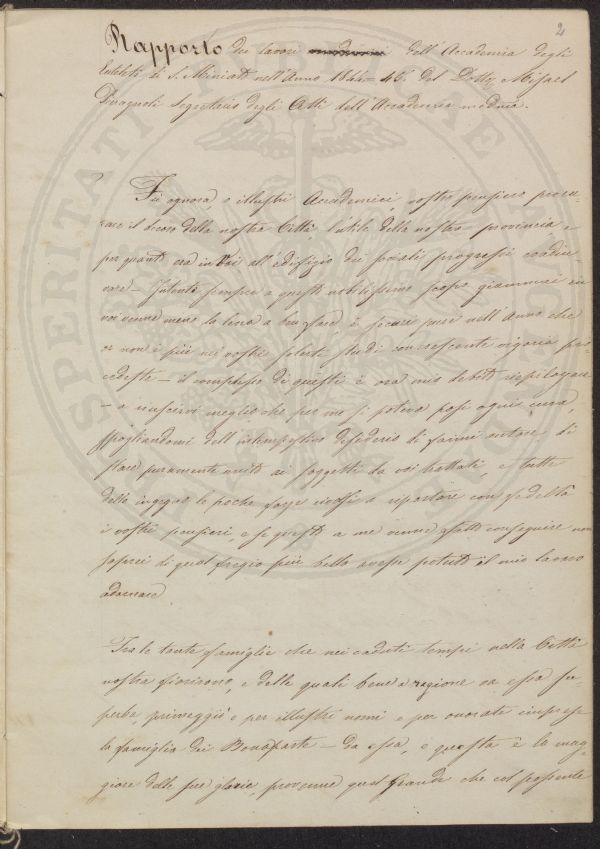 2
Rapporto dei lavori dell'Accademia degli
Euteleti di S. Miniato nell'Anno 1844=45 del Dott. Misael
Pragnoli Segretario degli Atti dell'Accademia medma.
Fu ognora o illustri Accademici vostro pensiero procu-
rare il decoro della nostra Città, l'utile della nostra provincia e
per quanto era in Voi all'edifizio dei sociali progressi coadiu-
vare - Intenti sempre a questo nobilissimo scopo giammai in
voi venne meno la lena a ben fare, e sicuri pure nell'Anno che
or non è più nei vostri solerti studi con crescente vigoria pro-
cedeste - il complesso di questi è ora mio debito riepilogare
- a riuscirvi meglio che per me si poteva posi ogni cura,
spogliandomi dell'intempestivo desiderio di farmi autore, di
stare puramente unito ai soggetti da voi trattati, e tutte
dello ingegno le poche forze volsi a riportare con fedeltà
i vostri pensieri, e se questo a me venne fatto conseguire non
saprei di qual fregio più bello avesse potuto il mio lavoro
adornare
Tra le tante famiglie che nei caduti tempi nella Città
nostra fiorirono, e delle quali bene a ragione va essa su-
perba, primeggiò e per illustri nomi e per onorate imprese
la famiglia dei Bonaparte - da essa, e questa è la mag-
giore delle sue glorie, provenne quel Grande che col possente
SPERITATI PUBLICAE AUGENDAE